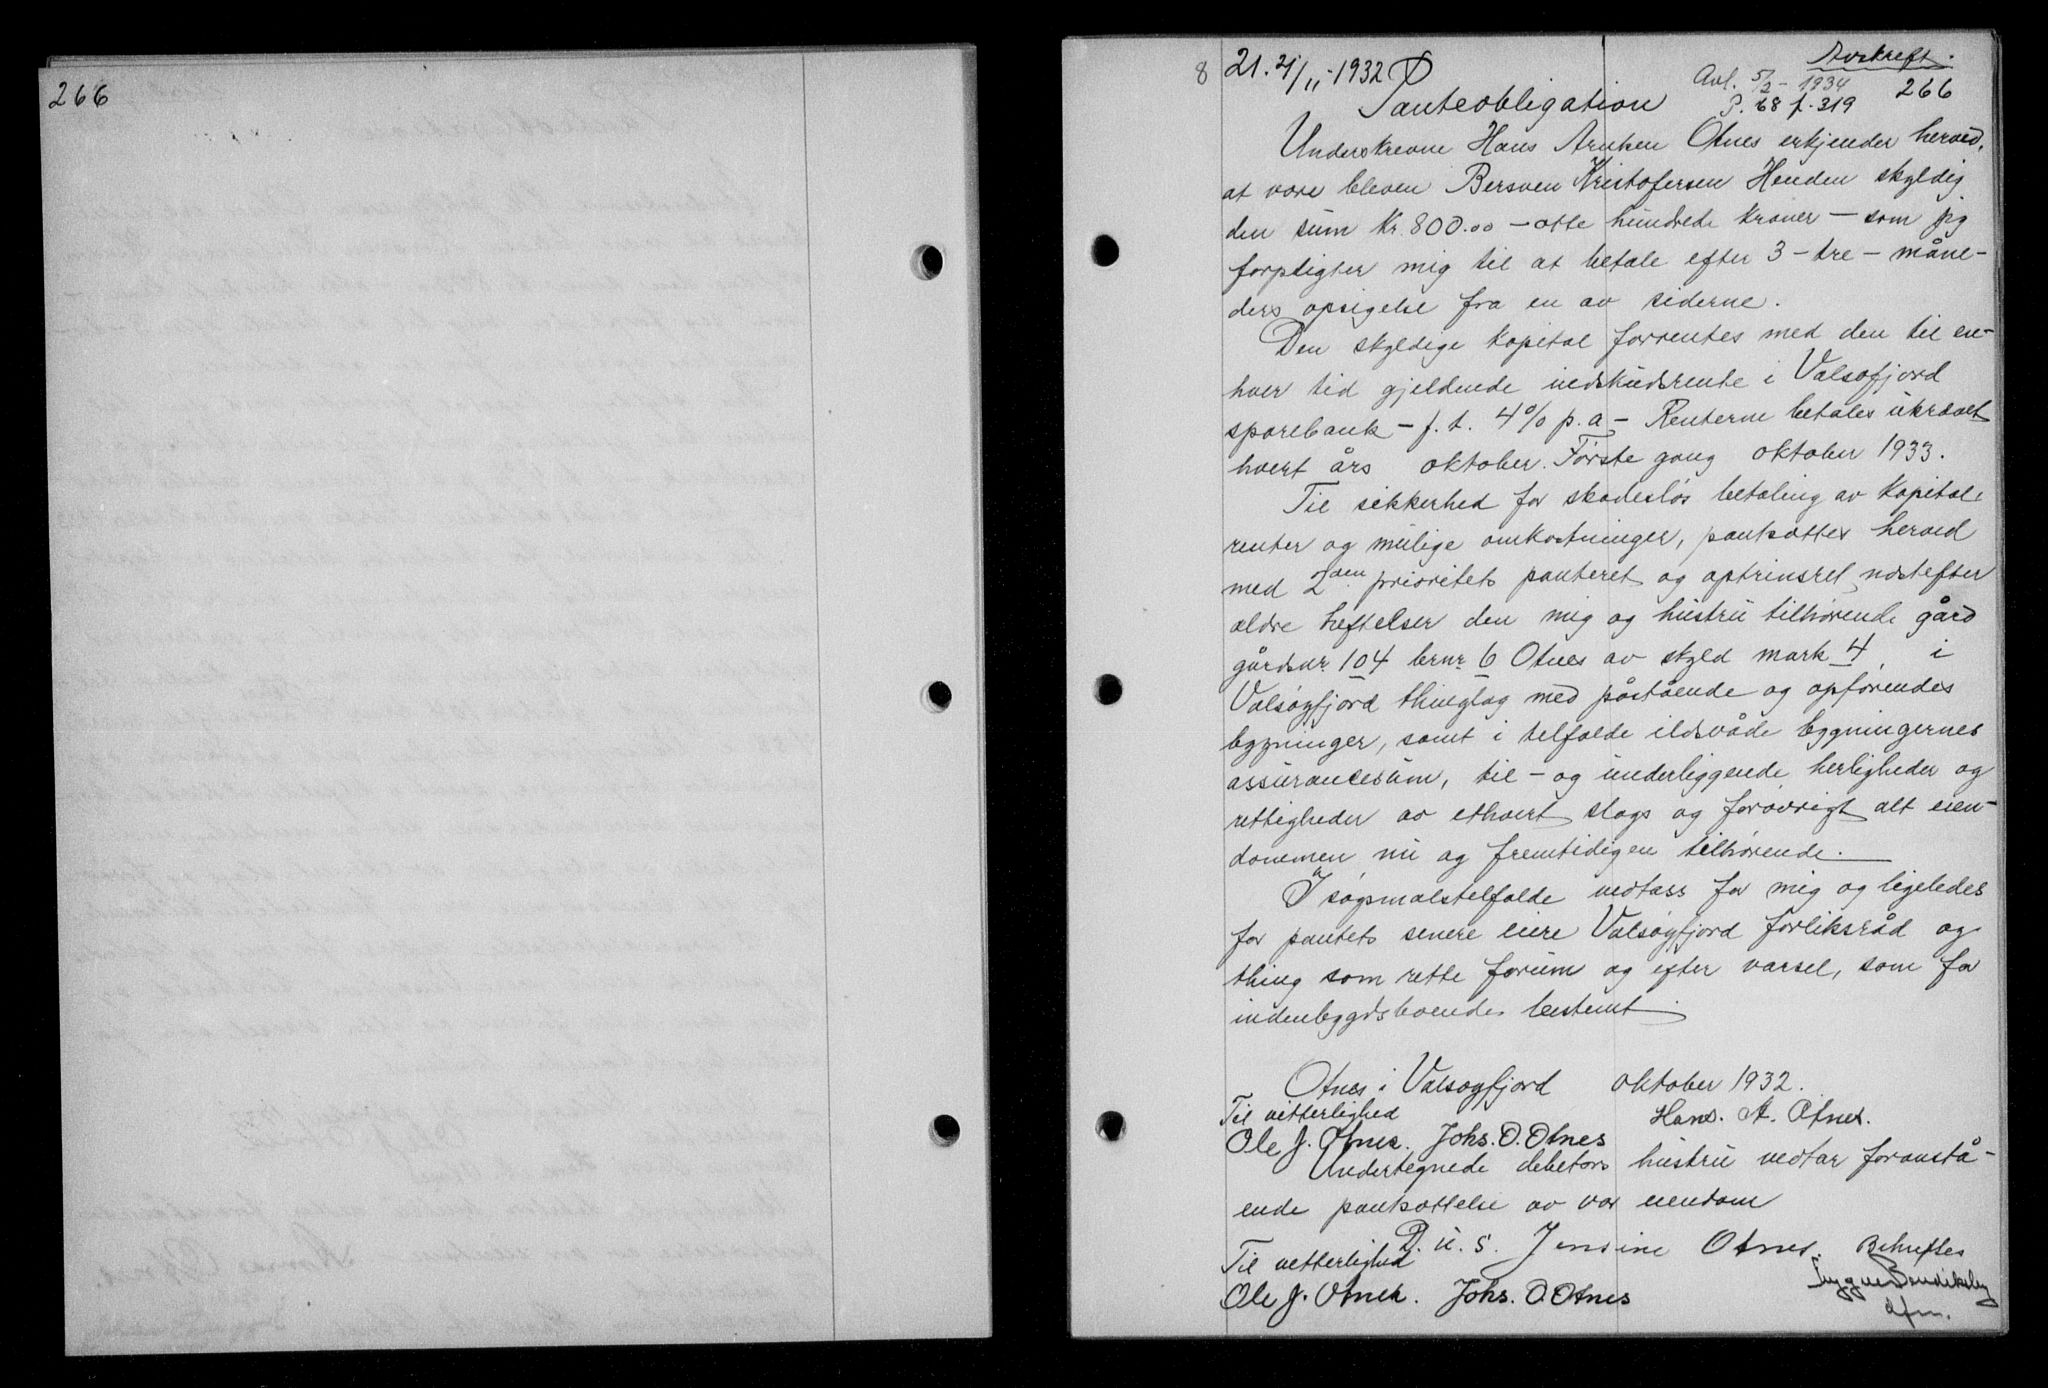 266
Avskrift.
8 21. 21/11-1932
Avl. 5/2-1934 266
Panteobligation P. 68 f. 319
Underskrevne Hans Arnken Otnes erkjender herved,
at være bleven Bersven Kristofersen Henden skyldig
den sum kr. 800.00 – otte hundrede kroner – som jeg
forpligter mig til at betale efter 3 – tre – måne-
ders opsigelse fra en av siderne.
Den skyldige kapital forrentes med den til en-
hver tid gjeldende indskudsrente i Valsøfjord
sparebank – f. t. 4% p. a – Renterne betales ukrævet
hvert års oktober. Første gang oktober 1933.
Til sikkerhed for skadesløs betaling av kapital,
renter og mulige omkostninger, pantsættes herved
med 2den prioritets panteret og optrinsret næstefter
ældre heftelser den mig og hustru tilhørende gård
gårdsnr. 104 brnr 6 Otnes av skyld mark 4, i
Valsøyfjord thinglag med påstående og opførendes
bygninger, samt i tilfælde ildsvåde bygningernes
assurancesum, til – og underliggende herligheder og
rettigheder av ethvert slags og forøvrigt alt eien-
dommen nu og fremtidigen tilhørende.
I søgsmålstilfælde vedtass for mig og ligeledes
for pantets senere eiere Valsøyfjord forliksråd og
thing som rette forum og efter varsel, som for
indenbygdsboendes bestemt.
Otnes i Valsøyfjord oktober 1932.
Til vitterlighed Hans. A. Otnes.
Ole J. Otnes. Johs. O. Otnes
Undertegnede debetors hustru vedtar foranstå-
ende pantsættelse av vor eiendom
D. u. S. Jensine Otnes. Bekreftes
Til vetterlighed
Ole J. Otnes. Johs. O. Otnes